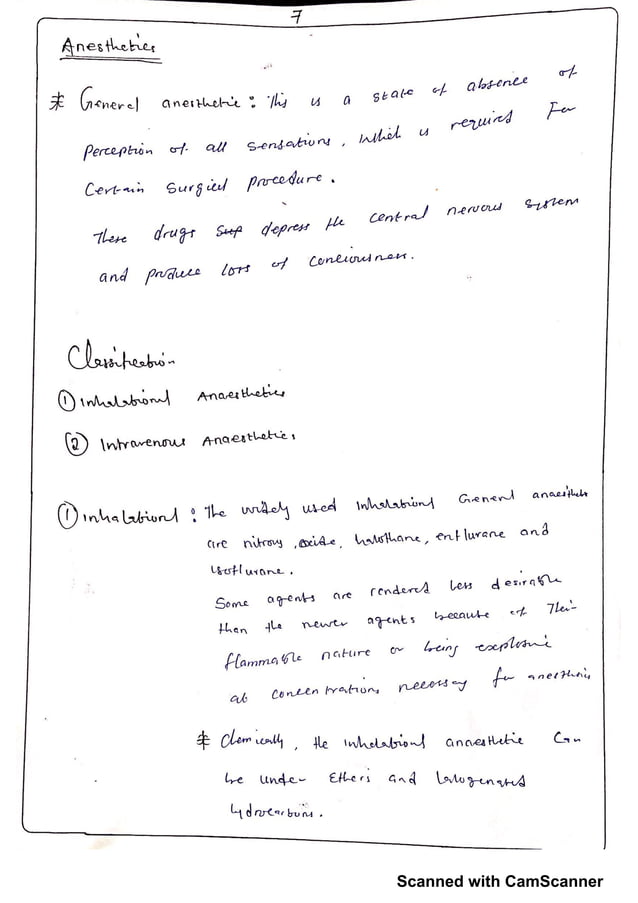 7
Anesthetics
* General anesthetic : This is a state of absence of
Perception of all sensations, which is required For
Certain Surgical procedure.
These drugs depress the central nervous system
and produce loss of conciousness.
Classification
① Inhalational Anaesthetics
② Intravenous Anaesthetics
① inhalational : The widely used Inhalational General anaesthetic
are nitrous oxide, halothane, enflurane and
Isoflurane.
Some agents are rendered less desirable
than the newer agents because of Their
flammable nature or being explosive
at concentrations necessary for anesthesia
* Chemically, the inhalational anaesthetic Can
be under Ethers and halogenated
hydrocarbons.
Scanned with CamScanner